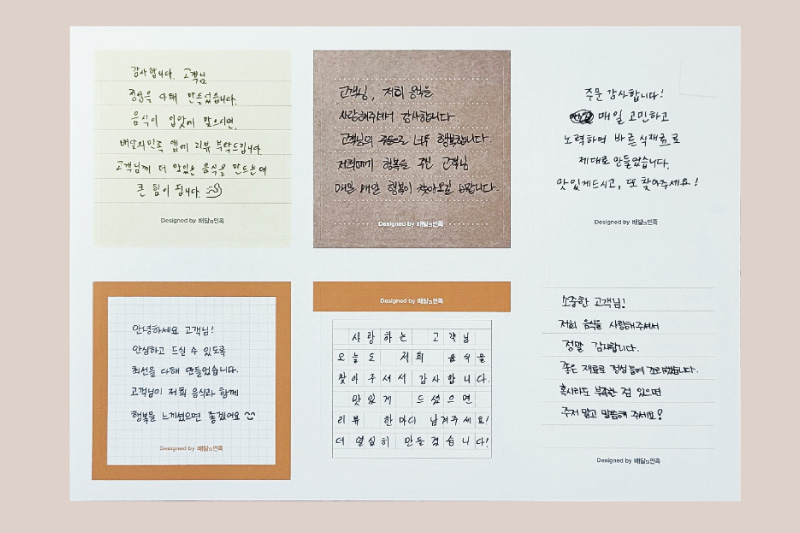 감사합니다. 고객님
정성을 다해 만들었습니다.
음식이 입맛에 맞으시면,
배달의민족 앱에 리뷰 부탁드립니다
고객님께 더 맛있는 음식을 만드는데
큰 힘이 됩니다
Designed by 배달의민족
고객님, 저희 음식을
사랑해주셔서 감사합니다
고객님의 주문으로 너무 행복합니다.
저희에게 행복을 주신 고객님
매일 매일 행복이 찾아오길 바랍니다.
Designed by 배달의민족
주문 감사합니다!
매일 고민하고
노력하여 바른 식재료로
제대로 만들었습니다.
맛있게드시고, 또 찾아주세요!
Designed by 배달의민족
안녕하세요 고객님!
안심하고 드실 수 있도록
최선을 다해 만들었습니다.
고객님이 저희 음식과 함께
행복을 느끼셨으면 좋겠어요
Designed by 배달의민족
Designed by 배달의민족
사랑하는 고객님
오늘도 저희 음식을
찾아주셔서 감사합니다.
맛있게 드셨으면
리뷰 한마디 남겨주세요!
더 열심히 만들겠습니다!
소중한 고객님!
저희 음식을 사랑해주셔서
정말 감사합니다.
좋은 재료로 정성 들여 만들었습니다.
혹시라도 부족한 점 있으면
주저 말고 말씀해 주세요?
Designed by 배달의민족